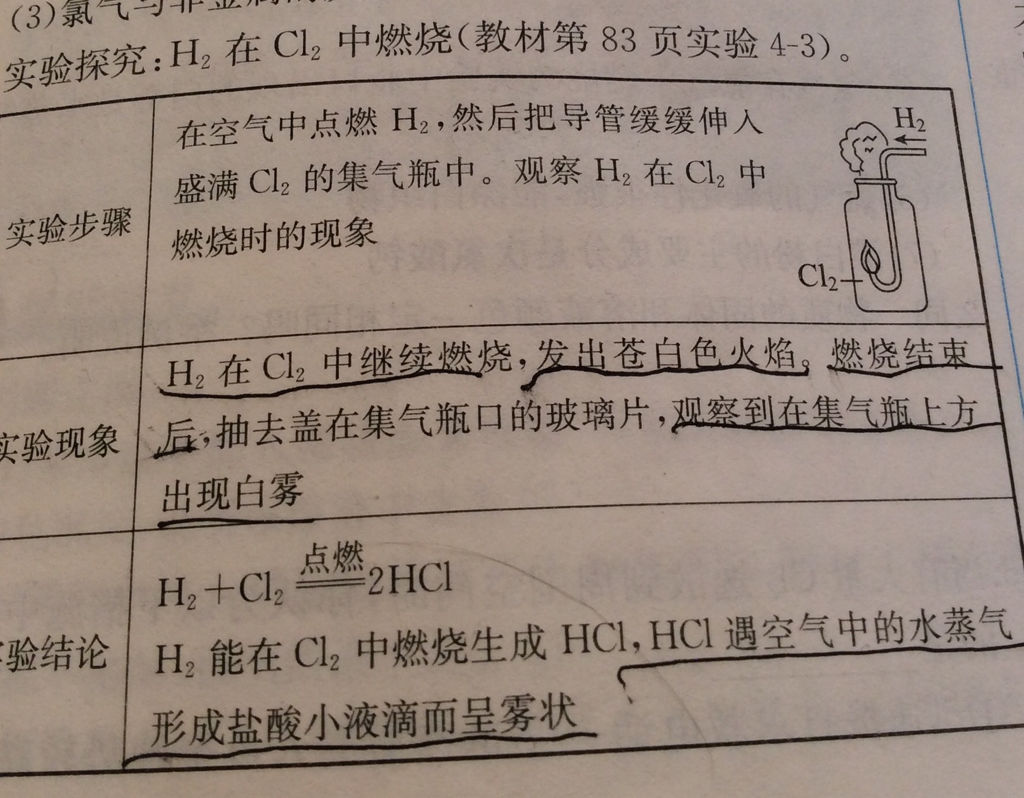 (3)氯气与非金属的反
实验探究:H₂ 在 Cl₂ 中燃烧(教材第 83 页实验 4-3)。
实验步骤
在空气中点燃 H₂,然后把导管缓缓伸入
盛满 Cl₂ 的集气瓶中。观察 H₂ 在 Cl₂ 中
燃烧时的现象
H₂
Cl₂
实验现象
H₂ 在 Cl₂ 中继续燃烧,发出苍白色火焰。燃烧结束
后,抽去盖在集气瓶口的玻璃片,观察到在集气瓶上方
出现白雾
验结论
点燃
H₂+Cl₂══2HCl
H₂ 能在 Cl₂ 中燃烧生成 HCl,HCl 遇空气中的水蒸气
形成盐酸小液滴而呈雾状